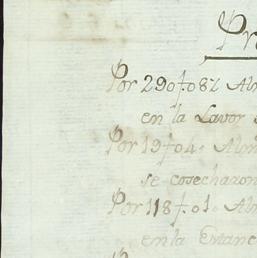 Pr
Por 290f.082 Alm
en la Lavor
Por 19f.04. Alm
se cosecharon
Por 118f.01. Alm
en la Estanc